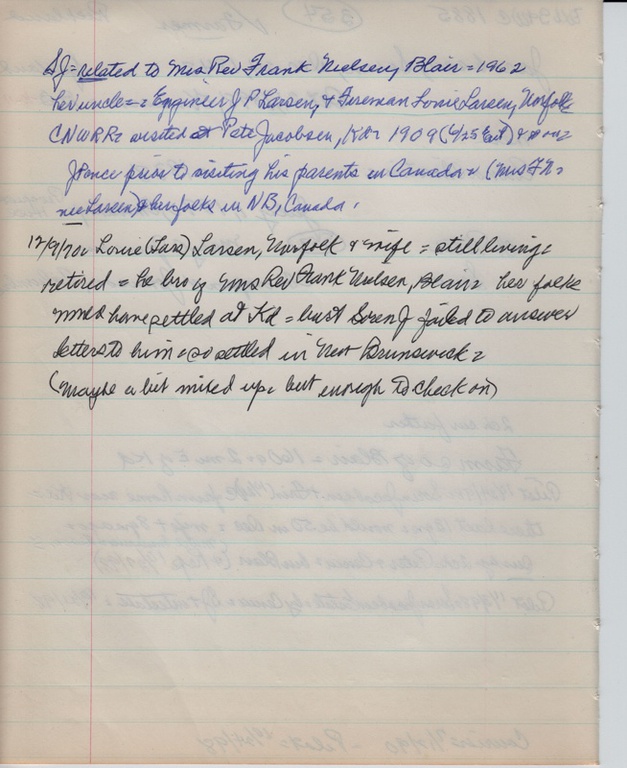 SJ = related to Mrs Rev Frank Nielsen, Blair = 1962
her uncle = Engineer J P Larsen, & Fireman Louie Larsen, Norfolk
CNWRR = visited at Pete Jacobsen, Kd = 1909 (4/25 East) &
J once prior to visiting his parents in Canada = (Mrs F N =
nee Larsen) & her folks in NB, Canada.
12/9/70 = Louie (Lars) Larsen, Norfolk & wife = still living =
retired = he bro of Mrs Rev Frank Nielsen, Blair = her folks
have settled at Kd = but Soren J failed to answer
letters to him = so settled in New Brunswick =
(maybe a bit mixed up = but enough to check on)